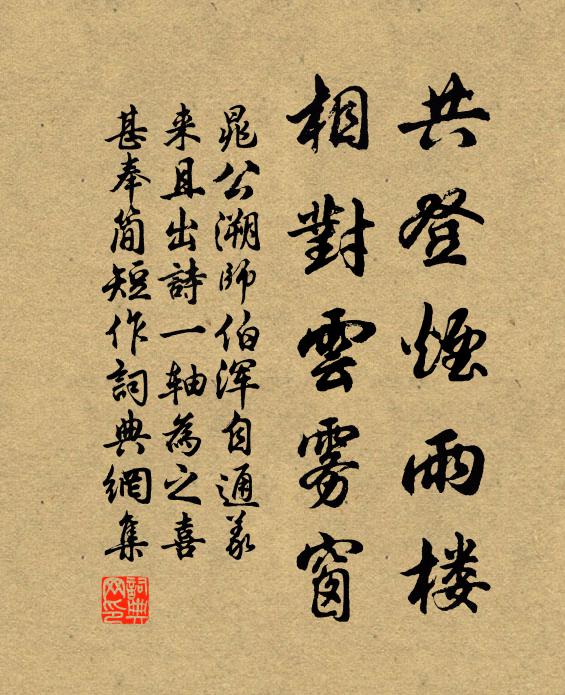 共登煙雨楼
相對雲雾窗
晁公溯師伯渾自通義
来且出詩一轴為之喜
甚奉簡短作詞典網集
詞典网印